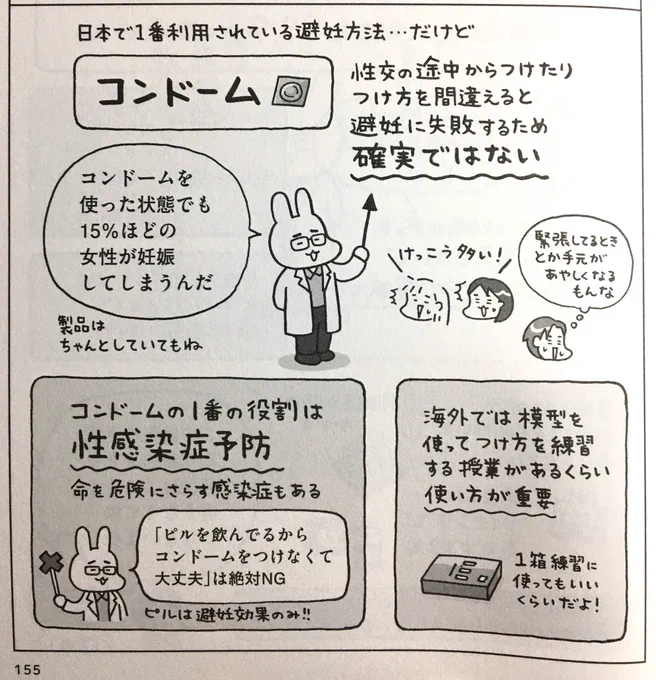 日本で1番利用されている避妊方法…だけど
コンドーム
性交の途中からつけたり
つけ方を間違えると
避妊に失敗するため
確実ではない
コンドームを
使った状態でも
15%ほどの
女性が妊娠
してしまうんだ
製品は
ちゃんとしていてもね
けっこう多い!
緊張してるとき
とか手元が
あやしくなる
もんな
コンドームの1番の役割は
性感染症予防
命を危険にさらす感染症もある
「ピルを飲んでるから
コンドームをつけなくて
大丈夫」は絶対NG
ピルは避妊効果のみ!!
海外では模型を
使ってつけ方を練習
する授業があるくらい
使い方が重要
1箱練習に
使ってもいい
くらいだよ!
155